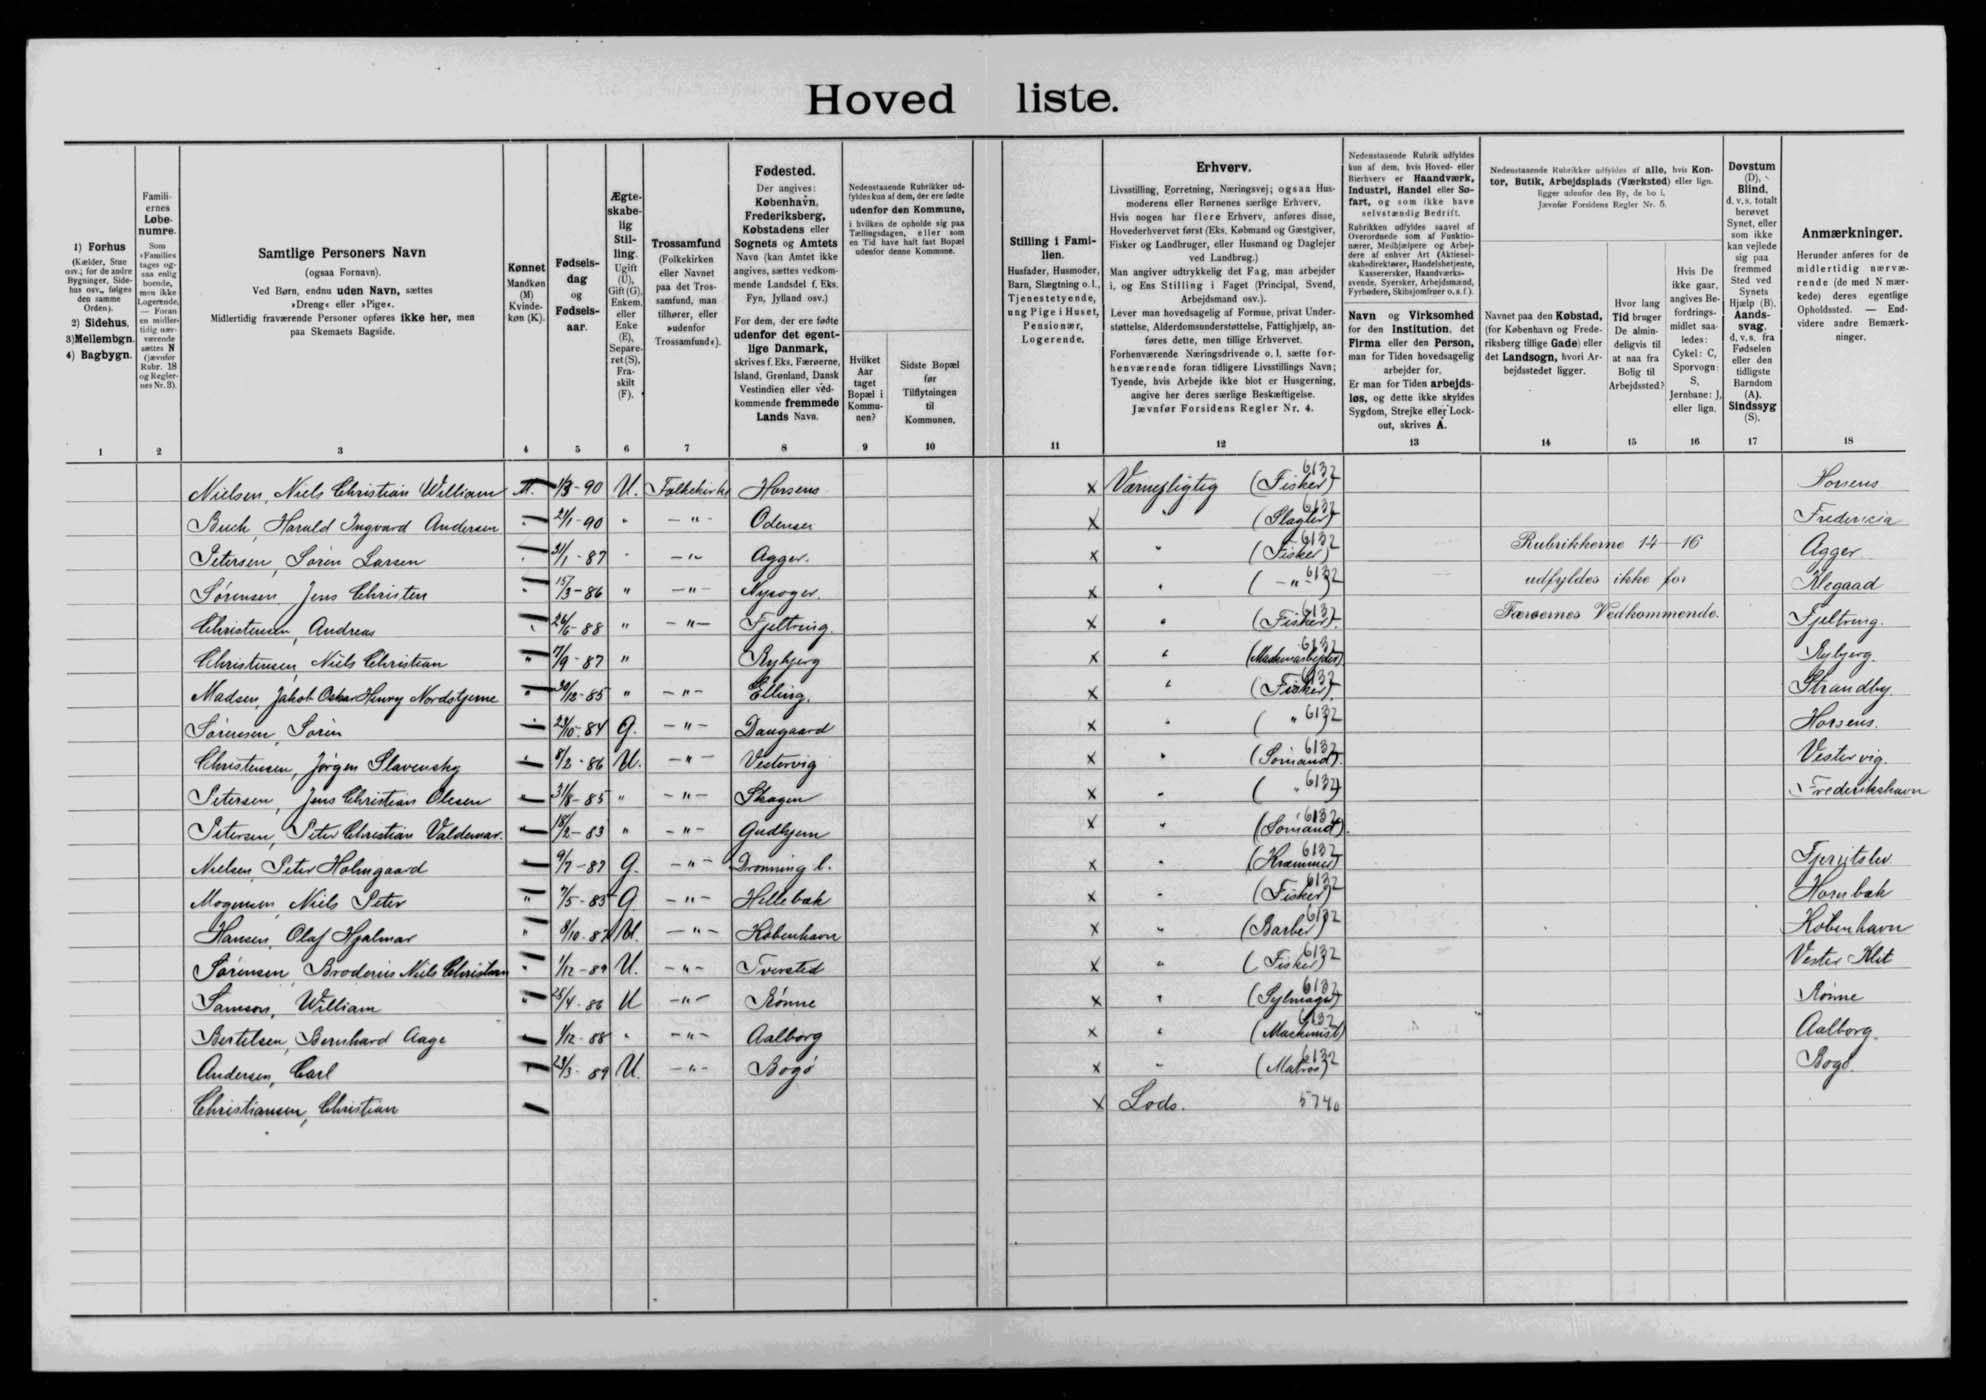 Hoved liste.
1) Forhus
(Kælder, Stue
osv.; for de andre
Bygninger, Side-
hus osv., følges
den samme
Orden).
2) Sidehus.
3) Mellembgn.
4) Bagbygn.
1
Famili-
ernes
Løbe-
numre.
Som
»Familie«
tages og-
saa enlig
boende,
men ikke
Logerende.
— Foran
en midler-
tidig nær-
værende
sættes N
(jævnfør
Rubr. 18
og Regler-
nes Nr. 3).
2
Samtlige Personers Navn
(ogsaa Fornavn).
Ved Børn, endnu uden Navn, sættes
»Dreng« eller »Pige«.
Midlertidig fraværende Personer opføres ikke her, men
paa Skemaets Bagside.
3
Kønnet
Mandkøn
(M)
Kvinde-
køn (K).
4
Fødsels-
dag
og
Fødsels-
aar.
5
Ægte-
skabe-
lig
Stil-
ling.
Ugift
(U),
Gift (G),
Enkem.
eller
Enke
(E),
Separe-
ret (S),
Fra-
skilt
(F).
6
Trossamfund
(Folkekirken
eller Navnet
paa det Tros-
samfund, man
tilhører, eller
»udenfor
Trossamfund«).
7
Fødested.
Der angives:
København,
Frederiksberg,
Købstadens eller
Sognets og Amtets
Navn (kan Amtet ikke
angives, sættes vedkom-
mende Landsdel f. Eks.
Fyn, Jylland osv.)
For dem, der ere fødte
udenfor det egent-
lige Danmark,
skrives f. Eks. Færøerne,
Island, Grønland, Dansk
Vestindien eller ved-
kommende fremmede
Lands Navn.
8
Nedenstaaende Rubrikker ud-
fyldes kun af dem, der ere fødte
udenfor den Kommune,
i hvilken de opholde sig paa
Tællingsdagen, eller som
en Tid have haft fast Bopæl
udenfor denne Kommune.
Hvilket
Aar
taget
Bopæl i
Kommu-
nen?
9
Sidste Bopæl
før
Tilflytningen
til
Kommunen.
10
Stilling i Fami-
lien.
Husfader, Husmoder,
Barn, Slægtning o. l.,
Tjenestetyende,
ung Pige i Huset,
Pensionær,
Logerende.
11
Erhverv.
Livsstilling, Forretning, Næringsvej; ogsaa Hus-
moderens eller Børnenes særlige Erhverv.
Hvis nogen har flere Erhverv, anføres disse,
Hovederhvervet først (Eks. Købmand og Gæstgiver,
Fisker og Landbruger, eller Husmand og Daglejer
ved Landbrug.)
Man angiver udtrykkelig det Fag, man arbejder
i, og Ens Stilling i Faget (Principal, Svend,
Arbejdsmand osv.).
Lever man hovedsagelig af Formue, privat Under-
støttelse, Alderdomsunderstøttelse, Fattighjælp, an-
føres dette, men tillige Erhvervet.
Forhenværende Næringsdrivende o. l. sætte for-
henværende foran tidligere Livsstillings Navn;
Tyende, hvis Arbejde ikke blot er Husgerning,
angive her deres særlige Beskæftigelse.
Jævnfør Forsidens Regler Nr. 4.
12
Nedenstaaende Rubrik udfyldes
kun af dem, hvis Hoved- eller
Bierhverv er Haandværk,
Industri, Handel eller Sø-
fart, og som ikke have
selvstændig Bedrift.
Rubrikken udfyldes saavel af
Overordnede som af Funktio-
nærer, Medhjælpere og Arbej-
dere af enhver Art (Aktiesel-
skabsdirektører, Handelsbetjente,
Kassererske, Haandværks-
svende, Syersker, Arbejdsmænd,
Fyrbødere, Skibsjomfruer o. s. f.).
Navn og Virksomhed
for den Institution, det
Firma eller den Person,
man for Tiden hovedsagelig
arbejder for.
Er man for Tiden arbejds-
løs, og dette ikke skyldes
Sygdom, Strejke eller Lock-
out, skrives A.
13
Nedenstaaende Rubrikker udfyldes af alle, hvis Kon-
tor, Butik, Arbejdsplads (Værksted) eller lign.
ligger udenfor den By, de bo i.
Jævnfør Forsidens Regler Nr. 5.
Navnet paa den Købstad,
(for København og Frede-
riksberg tillige Gade) eller
det Landsogn, hvori Ar-
bejdsstedet ligger.
14
Hvor lang
Tid bruger
De almin-
deligvis til
at naa fra
Bolig til
Arbejdssted?
15
Hvis De
ikke gaar,
angives Be-
fordrings-
midlet saa-
ledes:
Cykel: C,
Sporvogn:
S,
Jernbane: J,
eller lign.
16
Døvstum
(D),
Blind,
d. v. s. totalt
berøvet
Synet, eller
som ikke
kan vejlede
sig paa
fremmed
Sted ved
Synets
Hjælp (B),
Aands-
svag,
d. v. s. fra
Fødselen
eller den
tidligste
Barndom
(A).
Sindssyg
(S).
17
Anmærkninger.
Herunder anføres for de
midlertidig nærvæ-
rende (de med N mær-
kede) deres egentlige
Opholdssted. — End-
videre andre Bemærk-
ninger.
18
Nielsen, Niels Christian William M. 1/3-90 U. Folkekirke Horsens x Værnepligtig (Fisker) 6132 Horsens
Buch, Harald Ingvard Andersen " 21/1-90 " -"- Odense x " (Slagter) 6132 Fredericia
Petersen, Søren Larsen " 31/1-87 " -"- Agger. x " (Fisker) 6132 Rubrikkerne 14-16 Agger
Sørensen Jens Christen " 15/3-86 " -"- x " ( -"- ) 6132 udfyldes ikke for Klegaad
Christensen, Andreas " 26/6-88 " -"- Fjeltring. x " (Fisker) 6132 Færøernes Vedkommende. Fjeltring.
Christensen, Niels Christian " 7/9-87 " Rybjerg x " (Maskinarbejder) 6132 Rybjerg.
Madsen, Jakob Oskar Henry Nordstjerne " 30/12-85 " -"- Elling. x " (Fisker) 6132 Strandby.
Sørensen, Søren " 23/10-84 G. -"- Daugaard x " ( " ) 6132 Horsens.
Christensen, Jørgen Slavensky " 8/2-86 U. -"- Vestervig x " (Sømand) 6132 Vestervig.
Petersen, Jens Christian Olesen " 31/8-85 " -"- Skagen x " ( " ) 6132 Frederikshavn
Petersen, Peter Christian Valdemar. " 18/2-83 " -"- Gudhjem x " (Sømand) 6132
Nielsen, Peter Holmgaard " 9/7-87 G. -"- Dronningl. x " (Kræmmer) 6132 Fjerritslev
Mogensen, Niels Peter " 7/5-83 G -"- Hellebæk x " (Fisker) 6132 Hornbæk
Hansen, Olaf Hjalmar " 8/10-87 U. -"- København x " (Barber) 6132 København
Sørensen, Broderius Niels Christian " 1/12-89 U. -"- Tversted x " (Fisker) 6132 Vester Klit
Samson, William " 25/4-86 U -"- Rønne x " 6132 Rønne
Bertelsen, Bernhard Aage 1/12-88 " -"- Aalborg x " (Maskinist) 6132 Aalborg.
Andersen, Carl " 23/3-89 U. -"- Bogø x " (Matros) 6132 Bogø
Christiansen, Christian x Lods. 5740